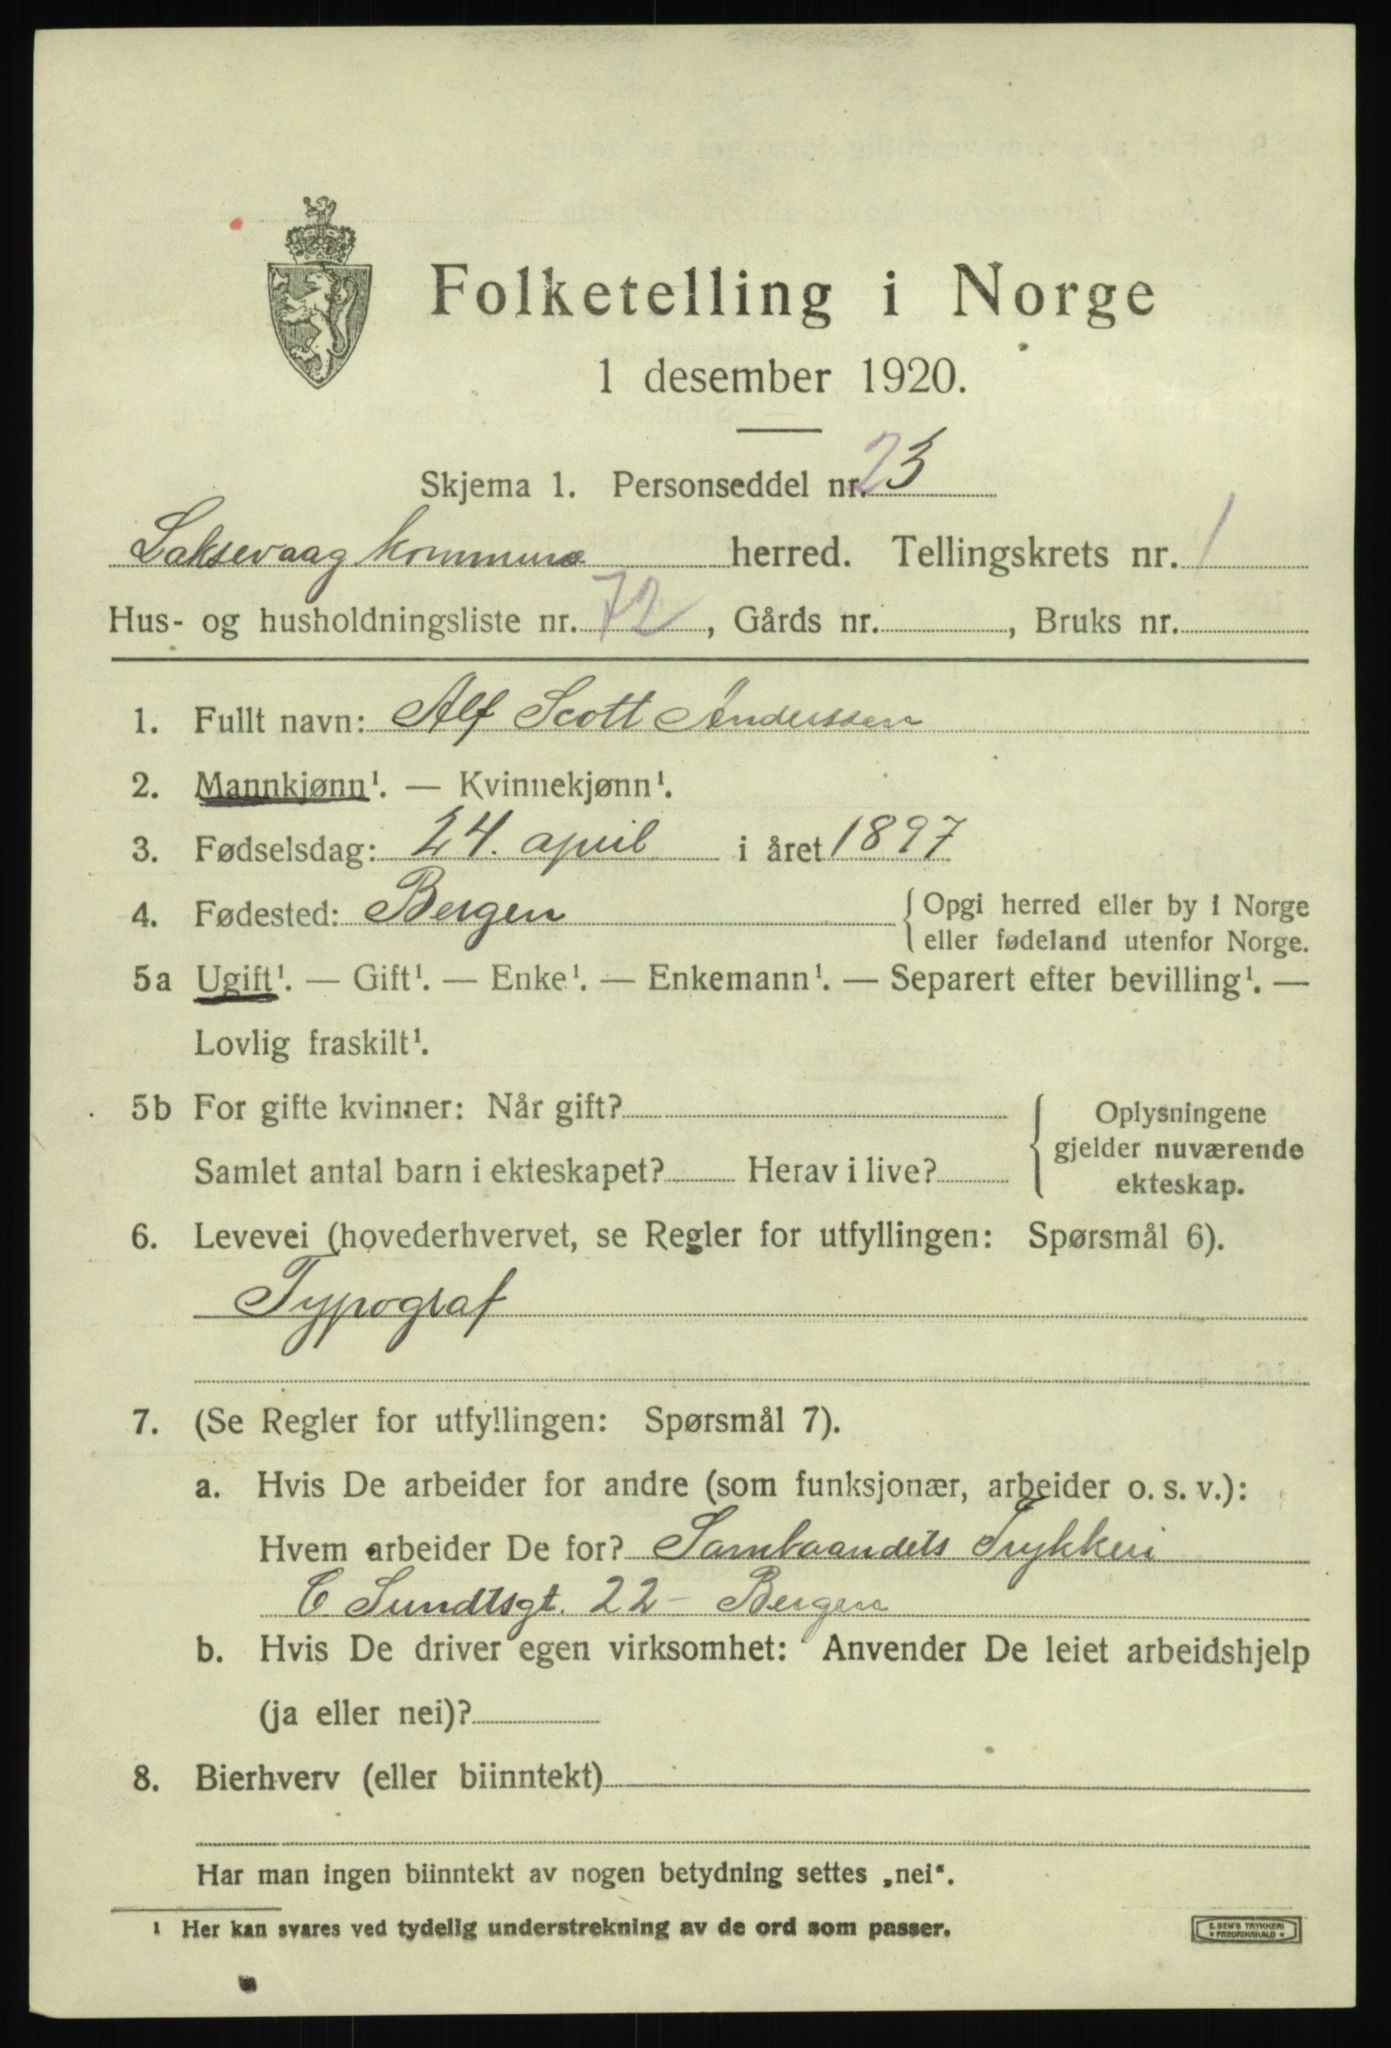 Folketelling i Norge
1 desember 1920.
Skjema 1. Personseddel nr. 23
Laksevaag kommune herred. Tellingskrets nr. 1
Hus- og husholdningsliste nr. 72, Gårds nr. , Bruks nr.
1. Fullt navn: Alf Scott Anderssen
2. Mannkjønn¹. — Kvinnekjønn¹.
3. Fødselsdag: 24. april i året 1897
4. Fødested: Bergen { Opgi herred eller by i Norge
eller fødeland utenfor Norge.
5a Ugift¹. — Gift¹. — Enke¹. — Enkemann¹. — Separert efter bevilling¹. —
Lovlig fraskilt¹.
5b For gifte kvinner: Når gift? { Oplysningene
gjelder nuværende
Samlet antal barn i ekteskapet? Herav i live?
ekteskap.
6. Levevei (hovederhvervet, se Regler for utfyllingen: Spørsmål 6).
Typograf
7. (Se Regler for utfyllingen: Spørsmål 7).
a. Hvis De arbeider for andre (som funksjonær, arbeider o. s. v.):
Hvem arbeider De for? Sambaandets Trykkeri
C Sundtsgt. 22 - Bergen
b. Hvis De driver egen virksomhet: Anvender De leiet arbeidshjelp
(ja eller nei)?
8. Bierhverv (eller biinntekt)
Har man ingen biinntekt av nogen betydning settes „nei“.
¹ Her kan svares ved tydelig understrekning av de ord som passer.
E. SEM'S TRYKKERI
FREDRIKSHALD